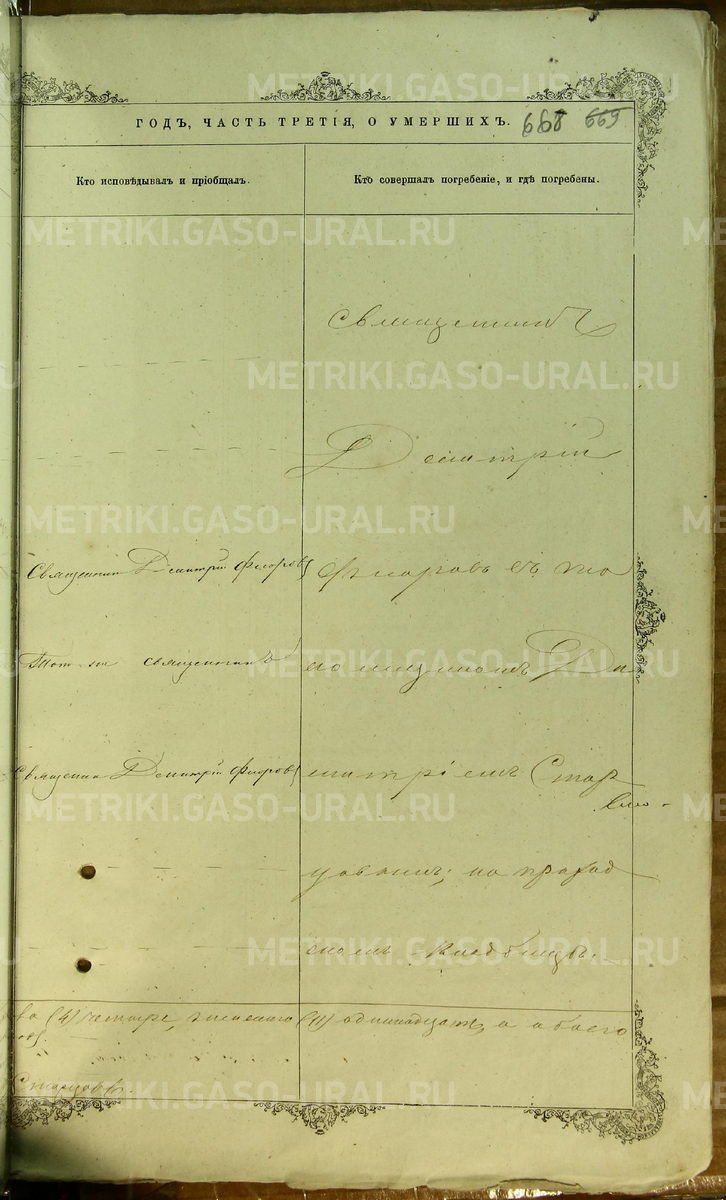 METRIKI.GASO-URAL.RU
ГОДЪ, ЧАСТЬ ТРЕТІЯ, О УМЕРШИХЪ. 668 669
Кто исповѣдывалъ и пріобщалъ.
Кто совершалъ погребеніе, и гдѣ погребены.
Священникъ
Димитрій
Священникъ Димитрій Флоровъ
Флоровъ съ
Тотъ же священникъ
Ди
Священникъ Димитрій Флоровъ
митріемъ Стар
цовымъ; на приход
скомъ кладбищѣ.
(4) четыре, женскаго (11) одиннадцать, а обоего
Старцовъ.